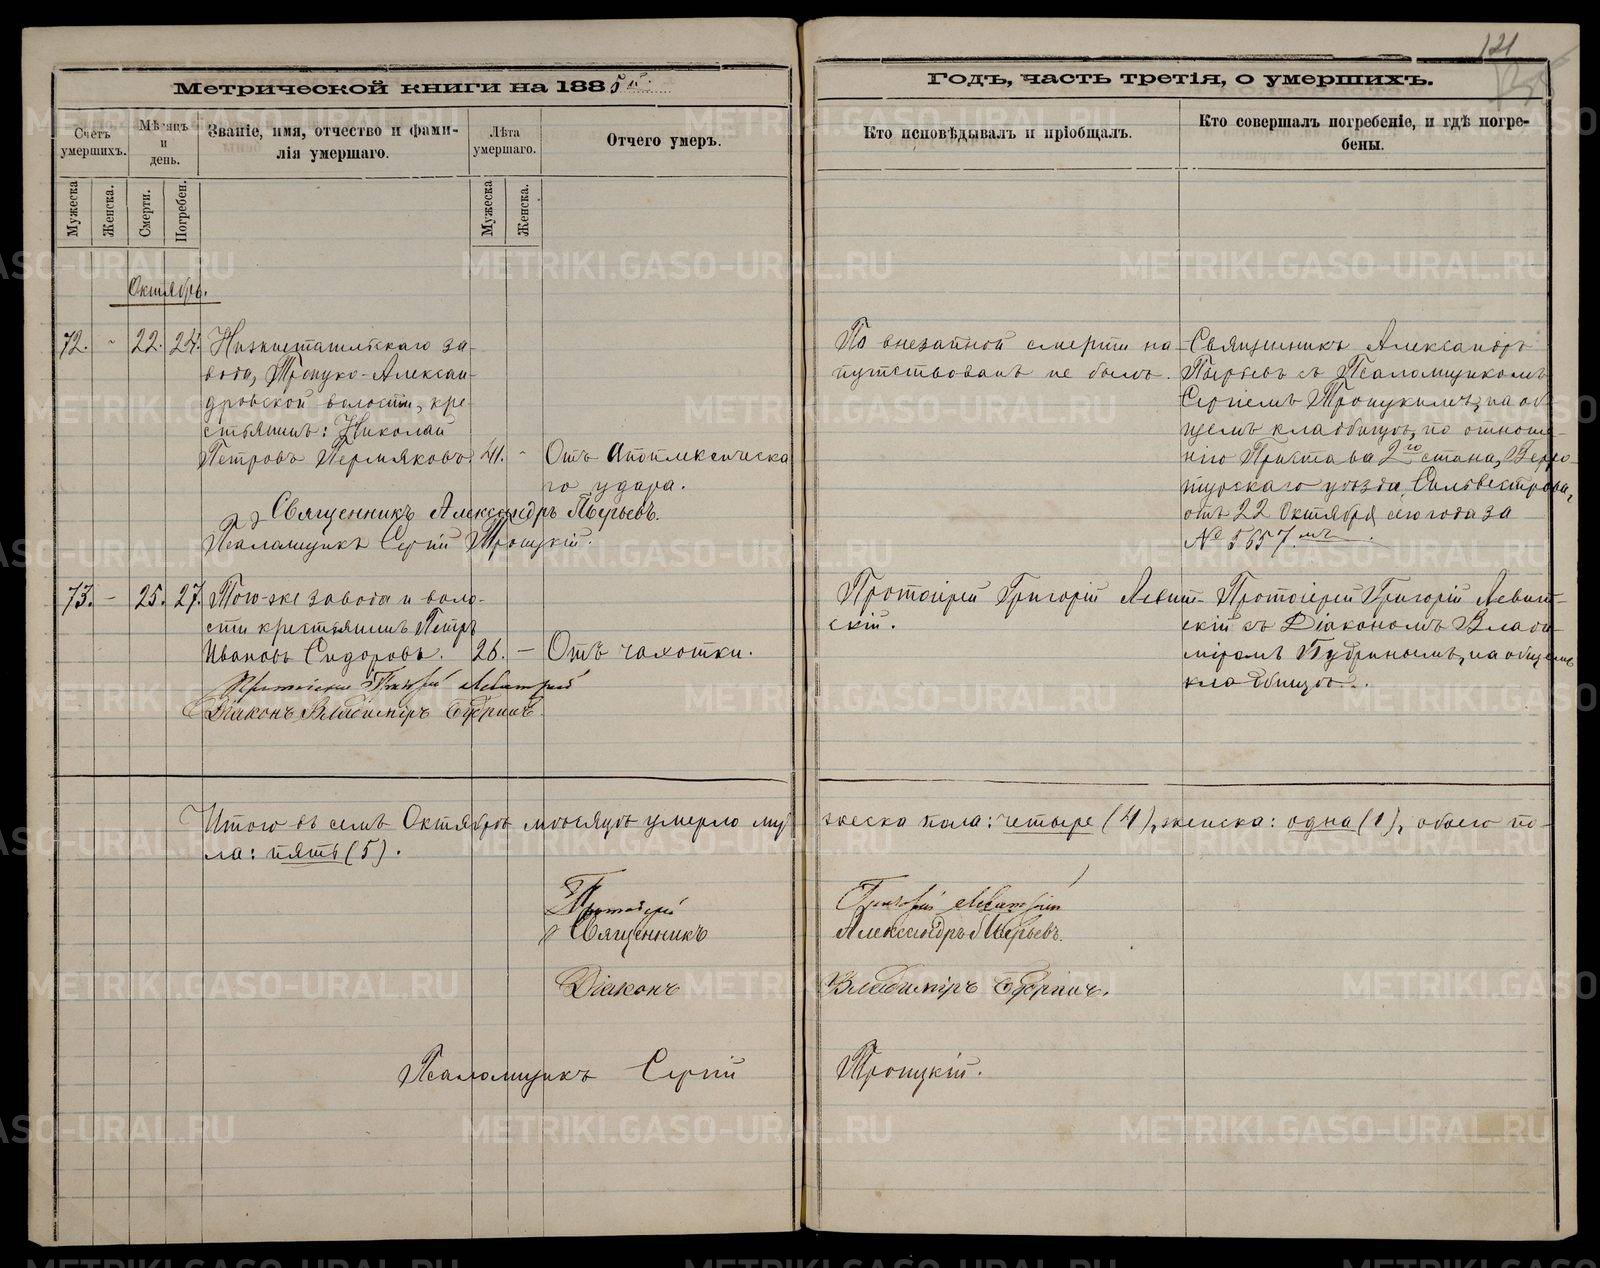 121
Метрической книги на 1885й
Годъ, часть третія, о умершихъ.
Счетъ умершихъ.
Мѣсяцъ и день.
Званіе, имя, отчество и фами-
лія умершаго.
Лѣта умершаго.
Отчего умеръ.
Кто исповѣдывалъ и пріобщалъ.
Кто совершалъ погребеніе, и гдѣ погре-
бены.
Мужеска
Женска.
Смерти.
Погребен.
Мужеска
Женска.
Октябрь.
72. - 22. 24. Нижнетагильскаго за-
вода, Троицко-Алексан-
дровской волости, кре-
стьянинъ: Николай
Петровъ Пермяковъ. 41. - Отъ Апоплексическа
го удара.
По внезапной смерти на-
путствованъ не былъ.
Священникъ Александръ
съ Псаломщикомъ
Сергіемъ Троицкимъ, на об
щемъ кладбищѣ, по отноше-
нію Пристава 2го стана, Верхо-
турскаго уѣзда, Сильвестрова,
отъ 22 Октября сего года за
№ 5657.мъ
Священникъ Александръ
Псаломщикъ Сергій Троицкій.
73. - 25. 27. Того-же завода и воло-
сти крестьянинъ Петръ
Ивановъ Сидоровъ. 26. - Отъ чахотки.
Протоіерей Григорій Левит-
скій.
Протоіерей Григорій Левит-
скій съ Діакономъ Влади-
міромъ на общемъ
кладбищѣ.
Протоіерей Григорій Левитскій
Діаконъ Владиміръ
Итого въ семъ Октябрѣ мѣсяцѣ умерло му
жеска пола: четыре (4), женска: одна (1), обоего по-
ла: пять (5).
Протоіерей Григорій Левитскій
Священникъ Александръ
Діаконъ Владиміръ
Псаломщикъ Сергій Троицкій.
METRIKI.GASO-URAL.RU